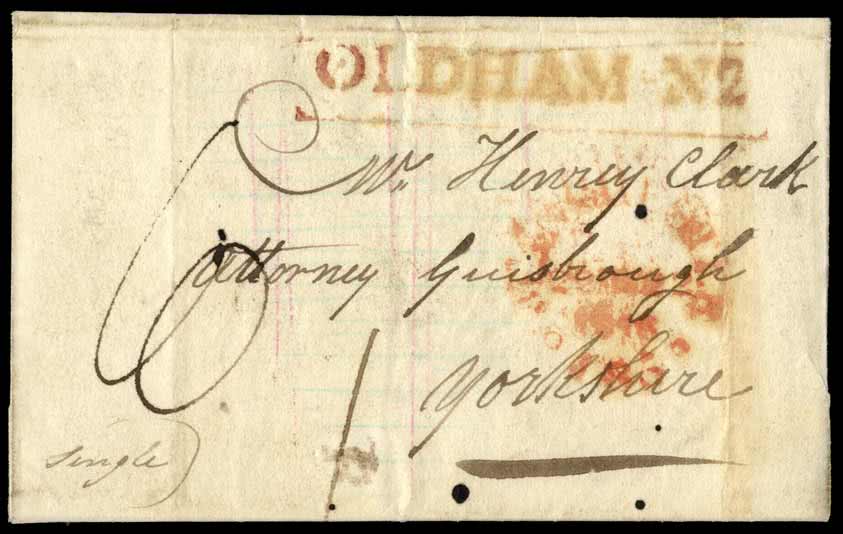 OLDHAM Nº2
Mr Henrey Clark
Attorney Guisbrough
Yorkshire
single